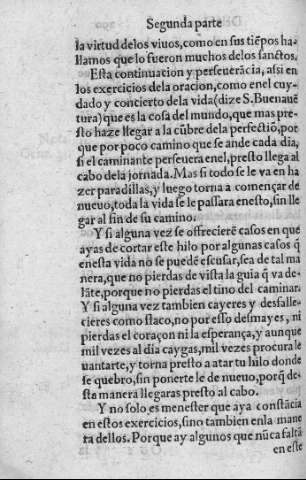 Segunda parte
la virtud delos viuos, como en sus tiẽpos ha-
llamos que lo fueron muchos delos sanctos.
Esta continuacion y perseuerãcia, assi en
los exercicios dela oracion, como enel cuy-
dado y concierto dela vida (dize S. Buenauẽ
tura) que es la cosa del mundo, que mas pre-
sto haze llegar a la cũbre dela perfectiõ, por
que por poco camino que se ande cada dia,
si el caminante perseuera enel, presto llega al
cabo dela jornada. Mas si todo se le va en ha
zer paradillas, y luego torna a començar de
nueuo, toda la vida se le passara enesto, sin lle
gar al fin de su camino.
Y si alguna vez se offrecierẽ casos en que
ayas de cortar este hilo por algunas casos q̃
enesta vida no se puedẽ escusar, sea de tal ma
nera, que no pierdas de vista la guia q̃ va de-
lãte, porque no pierdas el tino del caminar.
Y si alguna vez tambien cayeres y desfalle-
cieres como flaco, no por esso desmayes, ni
pierdas el coraçon ni la esperança, y aunque
mil vezes al dia caygas, mil vezes procura le
uantarte, y torna presto a atar tu hilo donde
se quebro, sin ponerte le de nueuo, porq̃ de-
sta manera llegaras presto al cabo.
Y no solo es menester que aya constãcia
en estos exercicios, sino tambien enla mane
ra dellos. Porque ay algunos que nũca faltã
en este